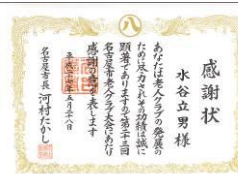 八
感謝状
水谷立男様
あなたは老人クラブの発展の
ために尽力されその功績は誠に
顕著でありますので第二十三回
名古屋市老人クラブ大会にあたり
感謝の意を表します
平成二十七年五月二十八日
名古屋市長 河村たかし